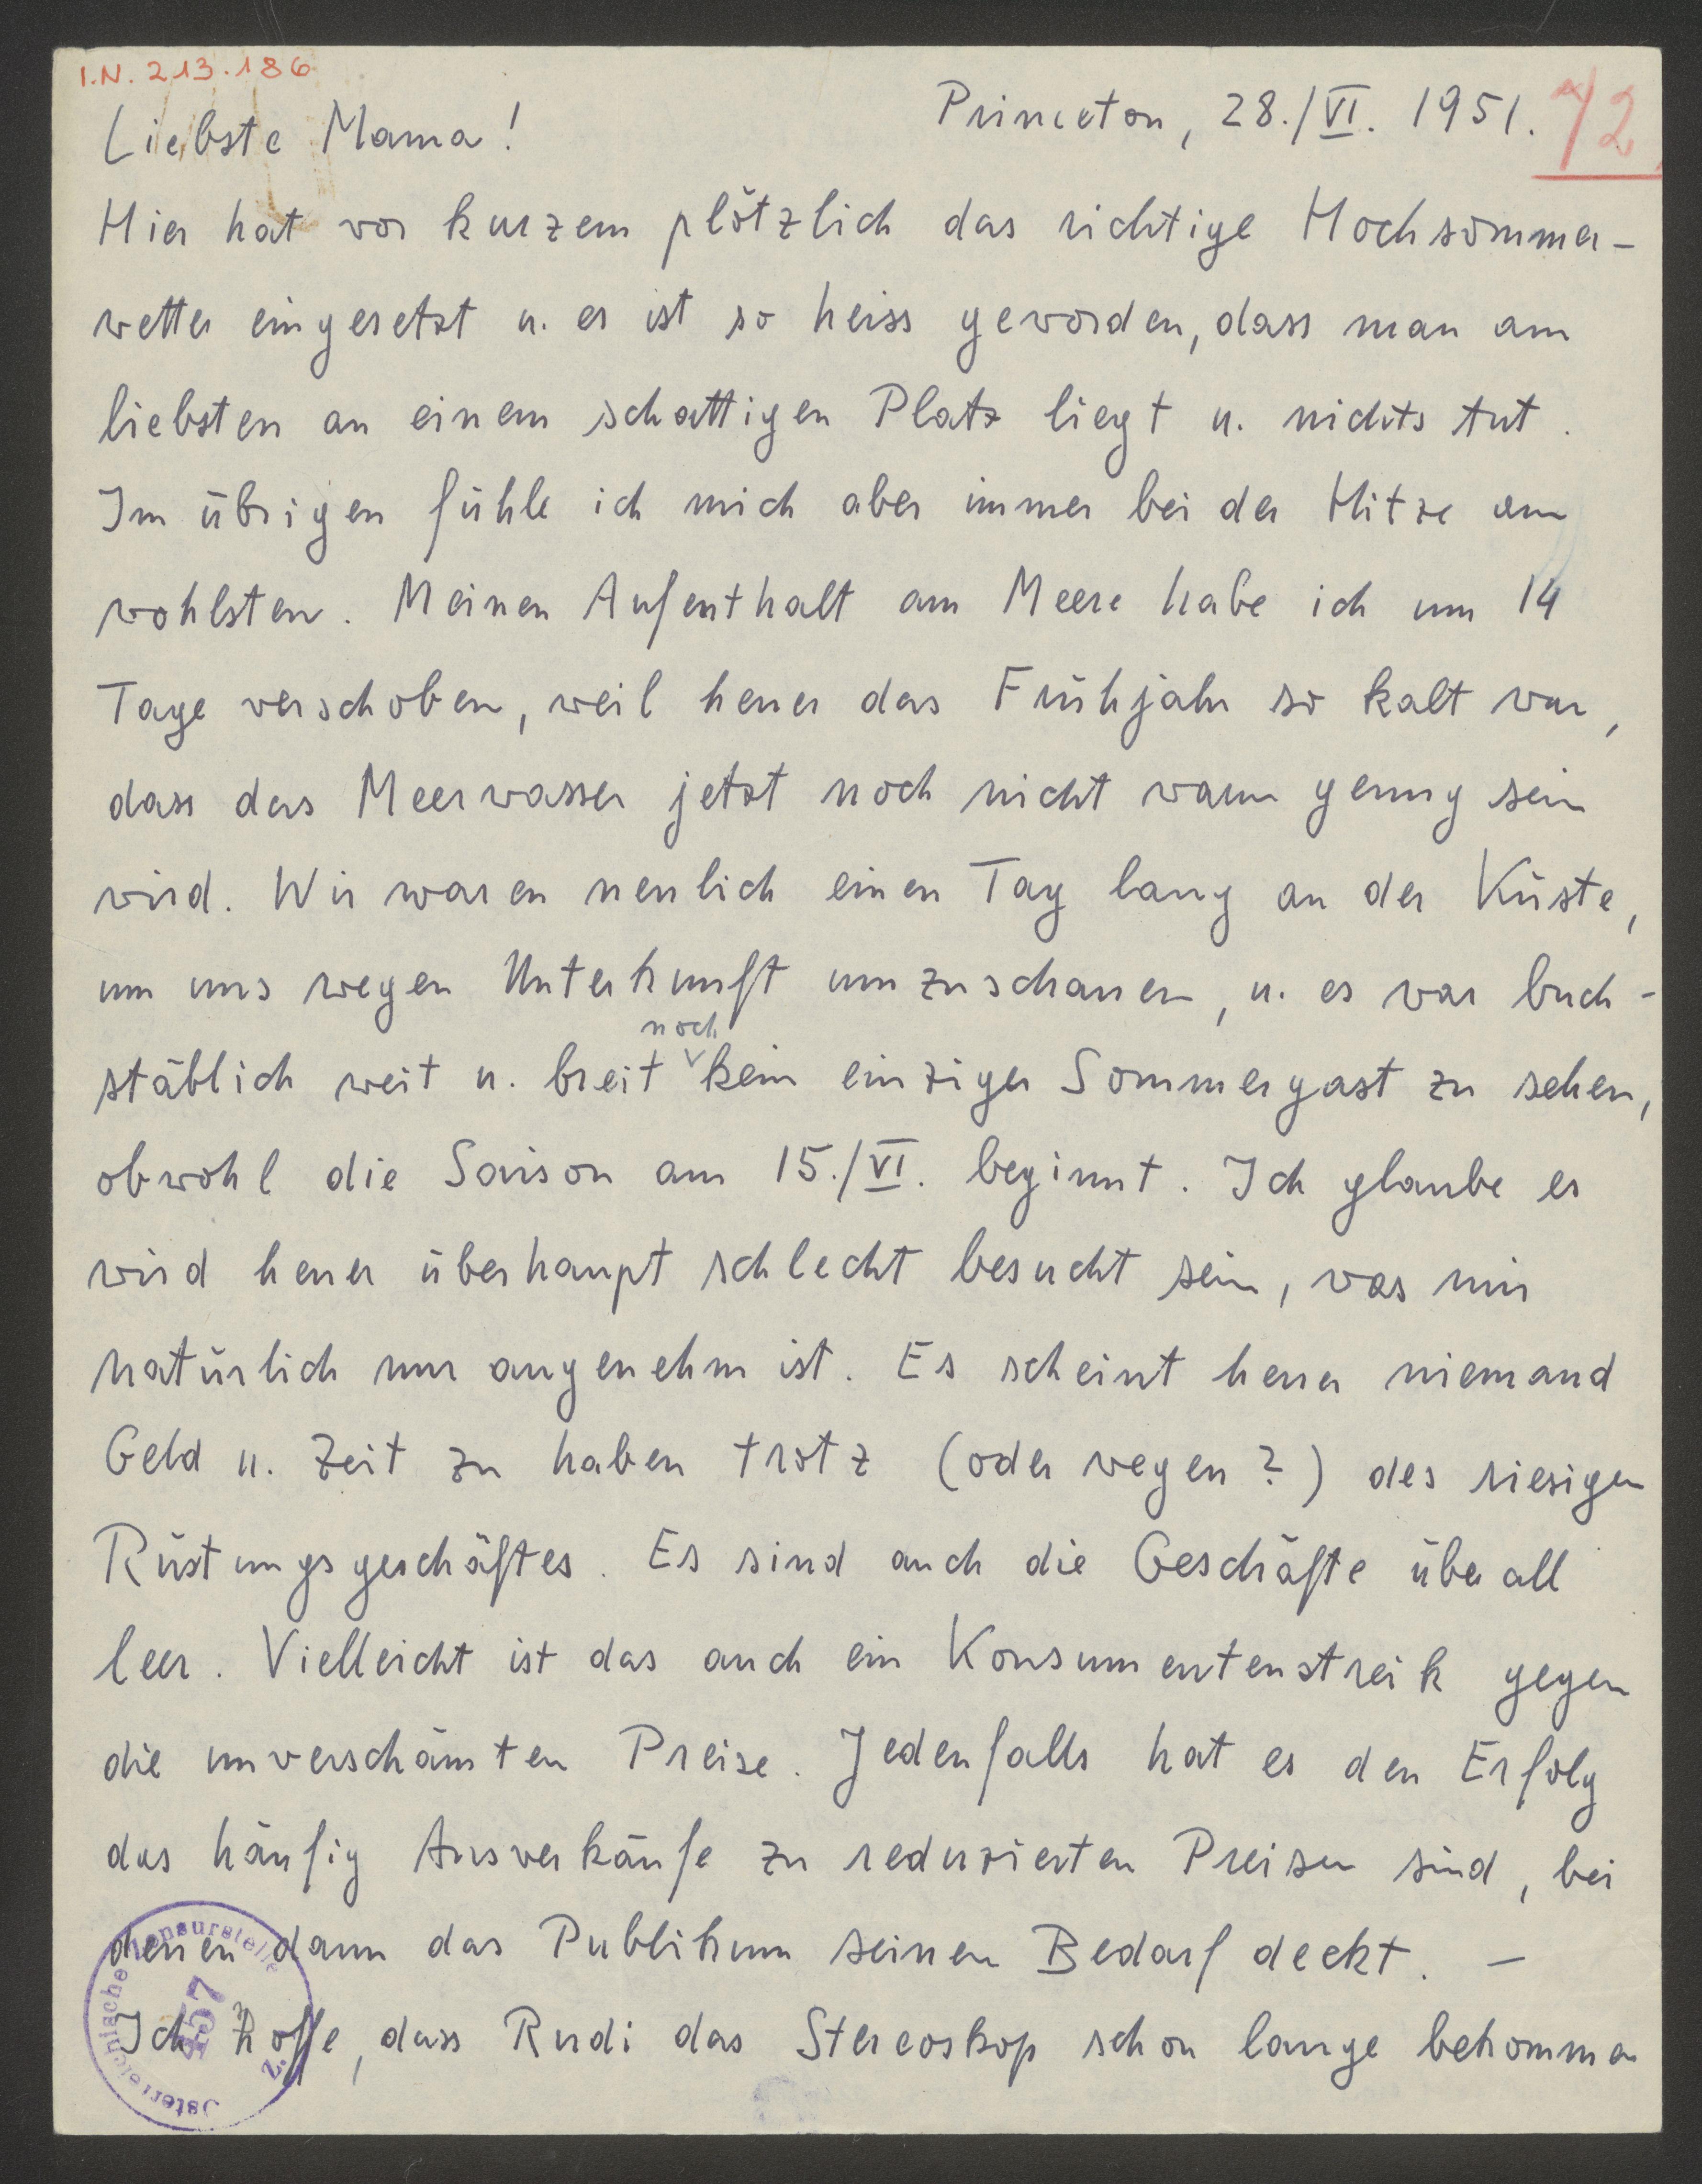 I.N. 213.186
Princeton, 28./VI. 1951. 72
Liebste Mama!
Hier hat vor kurzem plötzlich das richtige Hochsommer-
wetter eingesetzt u. es ist so heiss geworden, dass man am
liebsten an einem schattigen Platz liegt u. nichts tut.
Im übrigen fühle ich mich aber immer bei der Hitze am
wohlsten. Meinen Aufenthalt am Meere habe ich um 14
Tage verschoben, weil heuer das Frühjahr so kalt war,
dass das Meerwasser jetzt noch nicht warm genug sein
wird. Wir waren neulich einen Tag lang an der Küste,
um uns wegen Unterkunft umzuschauen, u. es war buch-
noch
stäblich weit u. breit kein einziger Sommergast zu sehen,
obwohl die Saison am 15./VI. beginnt. Ich glaube es
wird heuer überhaupt schlecht besucht sein, was mir
natürlich nur angenehm ist. Es scheint heuer niemand
Geld u. Zeit zu haben trotz (oder wegen?) des riesigen
Rüstungsgeschäftes. Es sind auch die Geschäfte überall
leer. Vielleicht ist das auch ein Konsumentenstreik gegen
die unverschämten Preise. Jedenfalls hat es den Erfolg
das häufig Ausverkäufe zu reduzierten Preisen sind, bei
denen dann das Publikum seinen Bedarf deckt. –
Ich hoffe, dass Rudi das Stereoskop schon lange bekommen
Österreichische Zensurstelle
457
2.